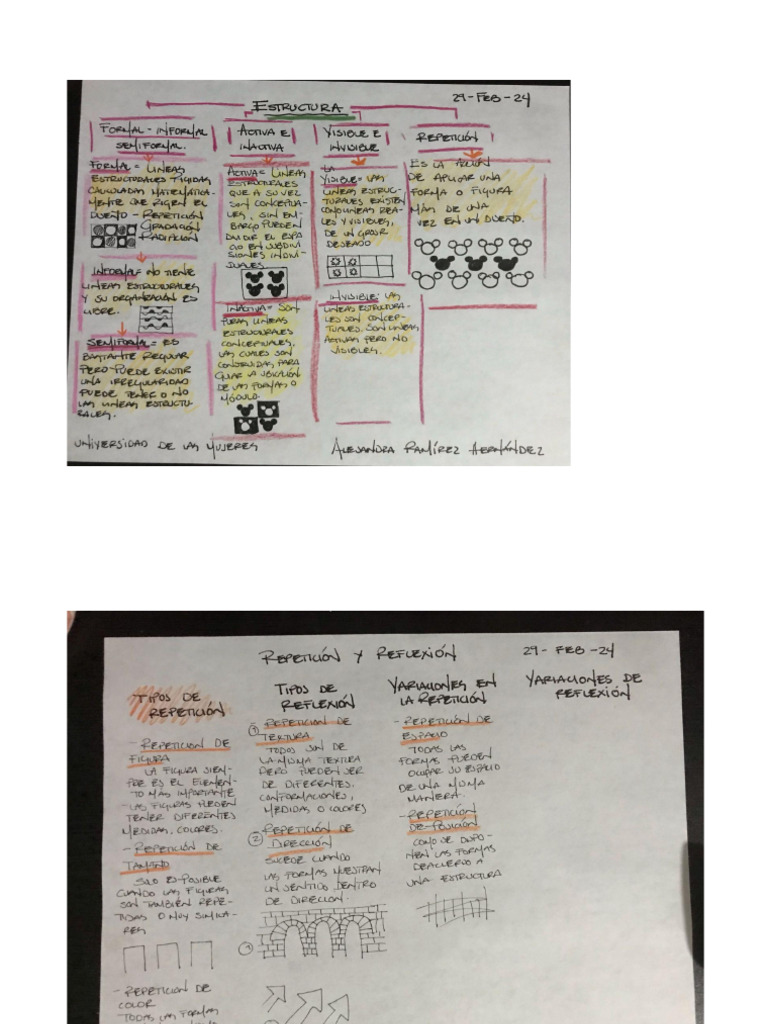 ESTRUCTURA
29-FEB-24
FORMAL-INFORMAL
SEMIFORMAL.
FORMAL = LINEAS
ESTRUCTURALES RIGIDAS
CALCULADAS MATEMATICA-
MENTE QUE RIGEN EL
DISEÑO - REPETICIÓN
GRADACIÓN
RADIACIÓN
INFORMAL= NO TIENE
LINEAS ESTRUCTURALES
Y SU ORGANIZACIÓN ES
LIBRE.
SEMIFORMAL= ES
BASTANTE REGULAR
PERO PUEDE EXISTIR
UNA IRREGULARIDAD
PUEDE TENER O NO
LAS LINEAS ESTRUCTU-
RALES.
ACTIVA E
INACTIVA
ACTIVA= LINEAS
ESTRUCTURALES
QUE A SU VEZ
SON CONCEPTUA-
LES, SIN EM-
BARGO PUEDEN
DIVIDIR EL ESPA
CIO EN SUBDIVI
SIONES INDIVI-
DUALES
INACTIVA= SON
PURAS LINEAS
ESTRUCTURALES
CONCEPTUALES,
LAS CUALES SON
CONSTRUIDAS PARA
GUIAR LA UBICACIÓN
DE LAS FORMAS O
MÓDULO.
VISIBLE E
INVISIBLE
LA
VISIBLE= LAS
LINEAS ESTRUC-
TURALES EXISTEN
COMO LINEAS REA-
LES Y VISIBLES,
DE UN GROSOR
DESEADO
INVISIBLE: LAS
LINEAS ESTRUCTURA-
LES SON CONCEP-
TUALES. SON LINEAS
ACTIVAS PERO NO
VISIBLES.
REPETICIÓN
ES LA ACCIÓN
DE APLICAR UNA
FORMA O FIGURA
MÁS DE UNA
VEZ EN UN DISEÑO.
UNIVERSIDAD DE LAS MUJERES
ALEJANDRA RAMÍREZ HERNÁNDEZ
REPETICIÓN Y REFLEXIÓN
29-FEB-24
TIPOS DE
REPETICIÓN
- REPETICION DE
FIGURA
LA FIGURA SIEM-
PRE ES EL ELEMEN-
TO MÁS IMPORTANTE
- LAS FIGURAS PUEDEN
TENER DIFERENTES
MEDIDAS, COLORES.
- REPETICIÓN DE
TAMAÑO
SOLO ES POSIBLE
CUANDO LAS FIGURAS
SON TAMBIÉN REPE-
TIDAS O MUY SIMILA-
RES
- REPETICIÓN DE
COLOR
TODAS LAS FORMAS
TIPOS DE
REFLEXIÓN
1 REPETICIÓN DE
TEXTURA
TODOS SON DE
LA MISMA TEXTURA
PERO PUEDEN SER
DE DIFERENTES,
CONFORMACIONES,
MEDIDAS O COLORES
2 REPETICIÓN DE
DIRECCIÓN
SUCEDE CUANDO
LAS FORMAS MUESTRAN
UN SENTIDO DENTRO
DE DIRECCION.
VARIACIONES EN
LA REPETICIÓN
- REPETICIÓN DE
ESPACIO
TODAS LAS
FORMAS PUEDEN
OCUPAR SU ESPACIO
DE UNA MISMA
MANERA.
- REPETICIÓN
DE POSICIÓN
COMO SE DISPO-
NEN LAS FORMAS
DEACUERDO A
UNA ESTRUCTURA
VARIACIONES DE
REFLEXIÓN